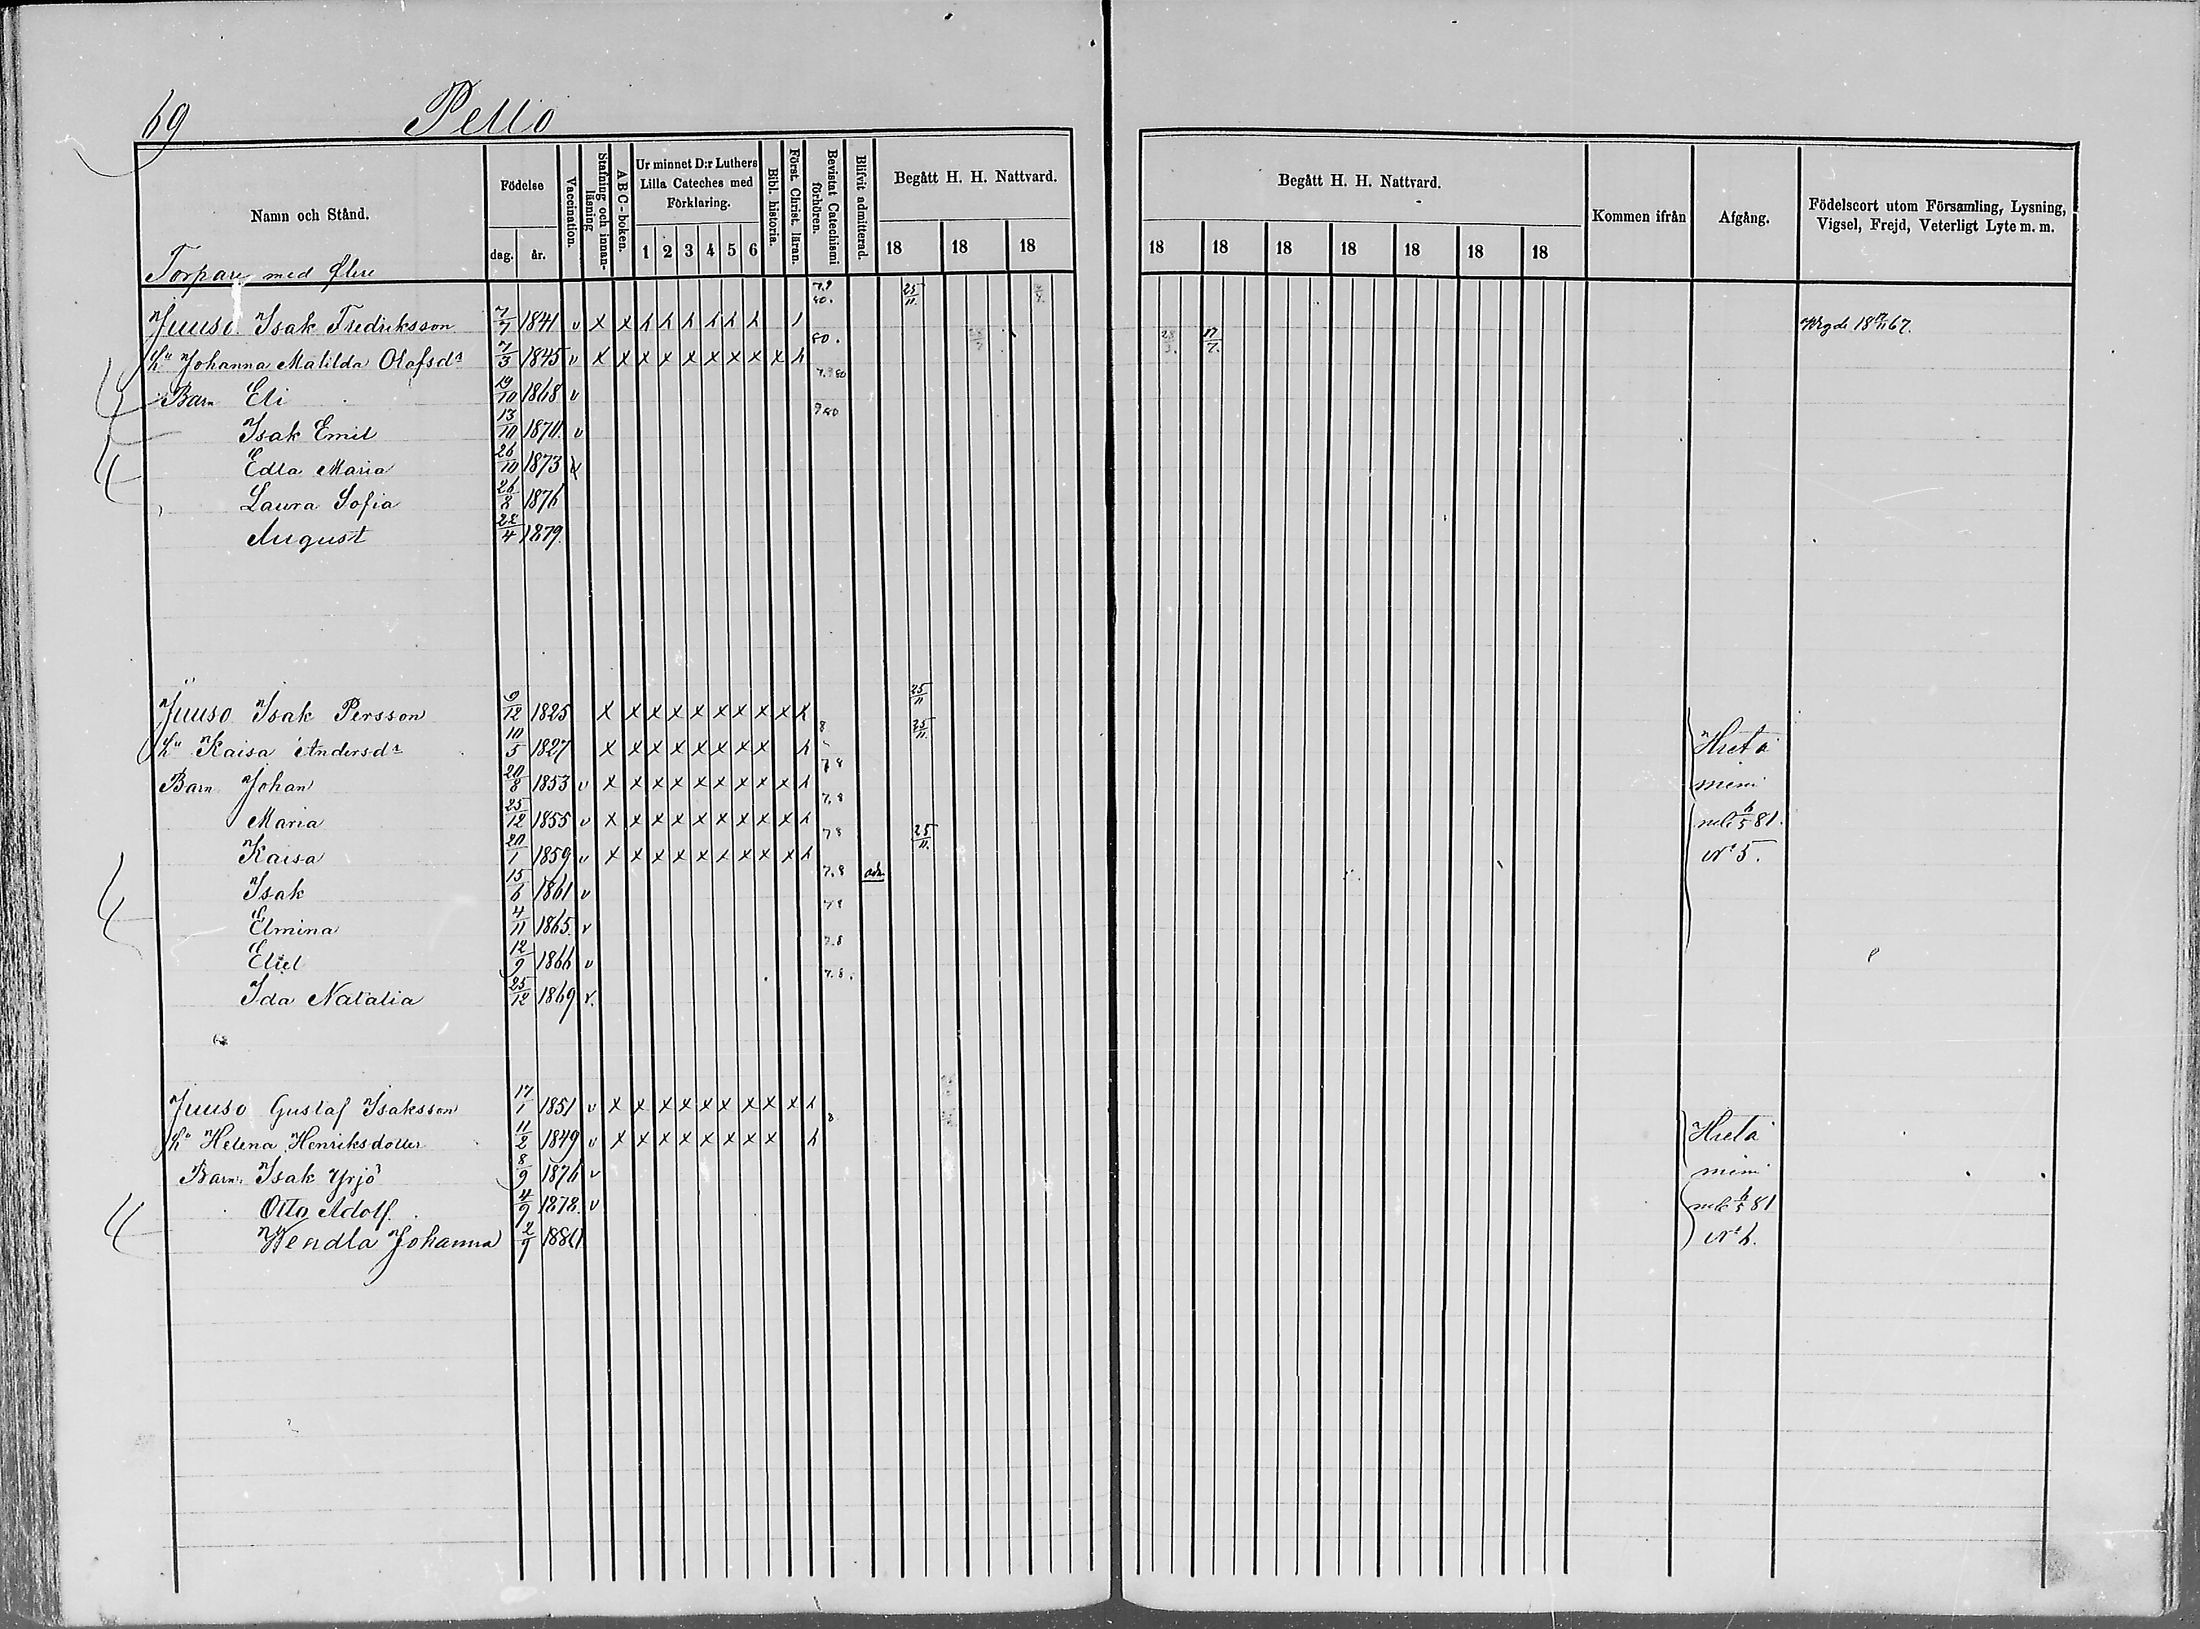 69 Pello
Namn och Stånd. Födelse dag. år. Vaccination. Stafning och innanläsning ABC-boken. Ur minnet D:r Luthers Lilla Cateches med Förklaring. 1 2 3 4 5 6 Bibl. historia. Först. Christ. läran. Bevistat Catechismi förhören. Blifvit admitterad. Begått H. H. Nattvard. 18 18 18
Begått H. H. Nattvard. 18 18 18 18 18 18 18 Kommen ifrån Afgång. Födelseort utom Församling, Lysning, Vigsel, Frejd, Veterligt Lyte m. m.
Torpare med flere
Juuso Isak Fredriksson 7/7 1841 v x x h h h h h h 25/11
h:u Johanna Matilda Olafsd:r 7/3 1845 v x x x x x x x x x h 80. 17/7.
Barn Eli 19/10 1868 v
Isak Emil 13/10 1870. v
Edla Maria 26/10 1873 v
Laura Sofia 26/8 1876
August 28/4 1879.
Juuso Isak Persson 9/12 1825 x x x x x x x x x h 25/11
h:u Kaisa Andersd:r 10/5 1827 x x x x x x x x h 8 25/11. Hietaniemi
Barn Johan 20/8 1853 v x x x x x x x x x h 7 8
Maria 25/12 1855 v x x x x x x x x x h 7.8 6/5 81.
Kaisa 20/1 1859 v x x x x x x x x x h 7 8 25/11. N:o 5.
Isak 15/6 1861 v 7.8 adm.
Elmina 4/11 1865. v
Eliel 12/9 1866 v 7.8
Ida Natalia 25/12 1869 v. 7.8.
Juuso Gustaf Isaksson 17/1 1851 v x x x x x x x x x h
h:u Helena Henriksdotter 11/2 1849 v x x x x x x x x h 8 Hietaniemi
Barn: Isak Yrjö 8/9 1876 v
Otto Adolf. 4/9 1878. v 6/5 81
Wendla Johanna 2/9 1880 N:o 6.